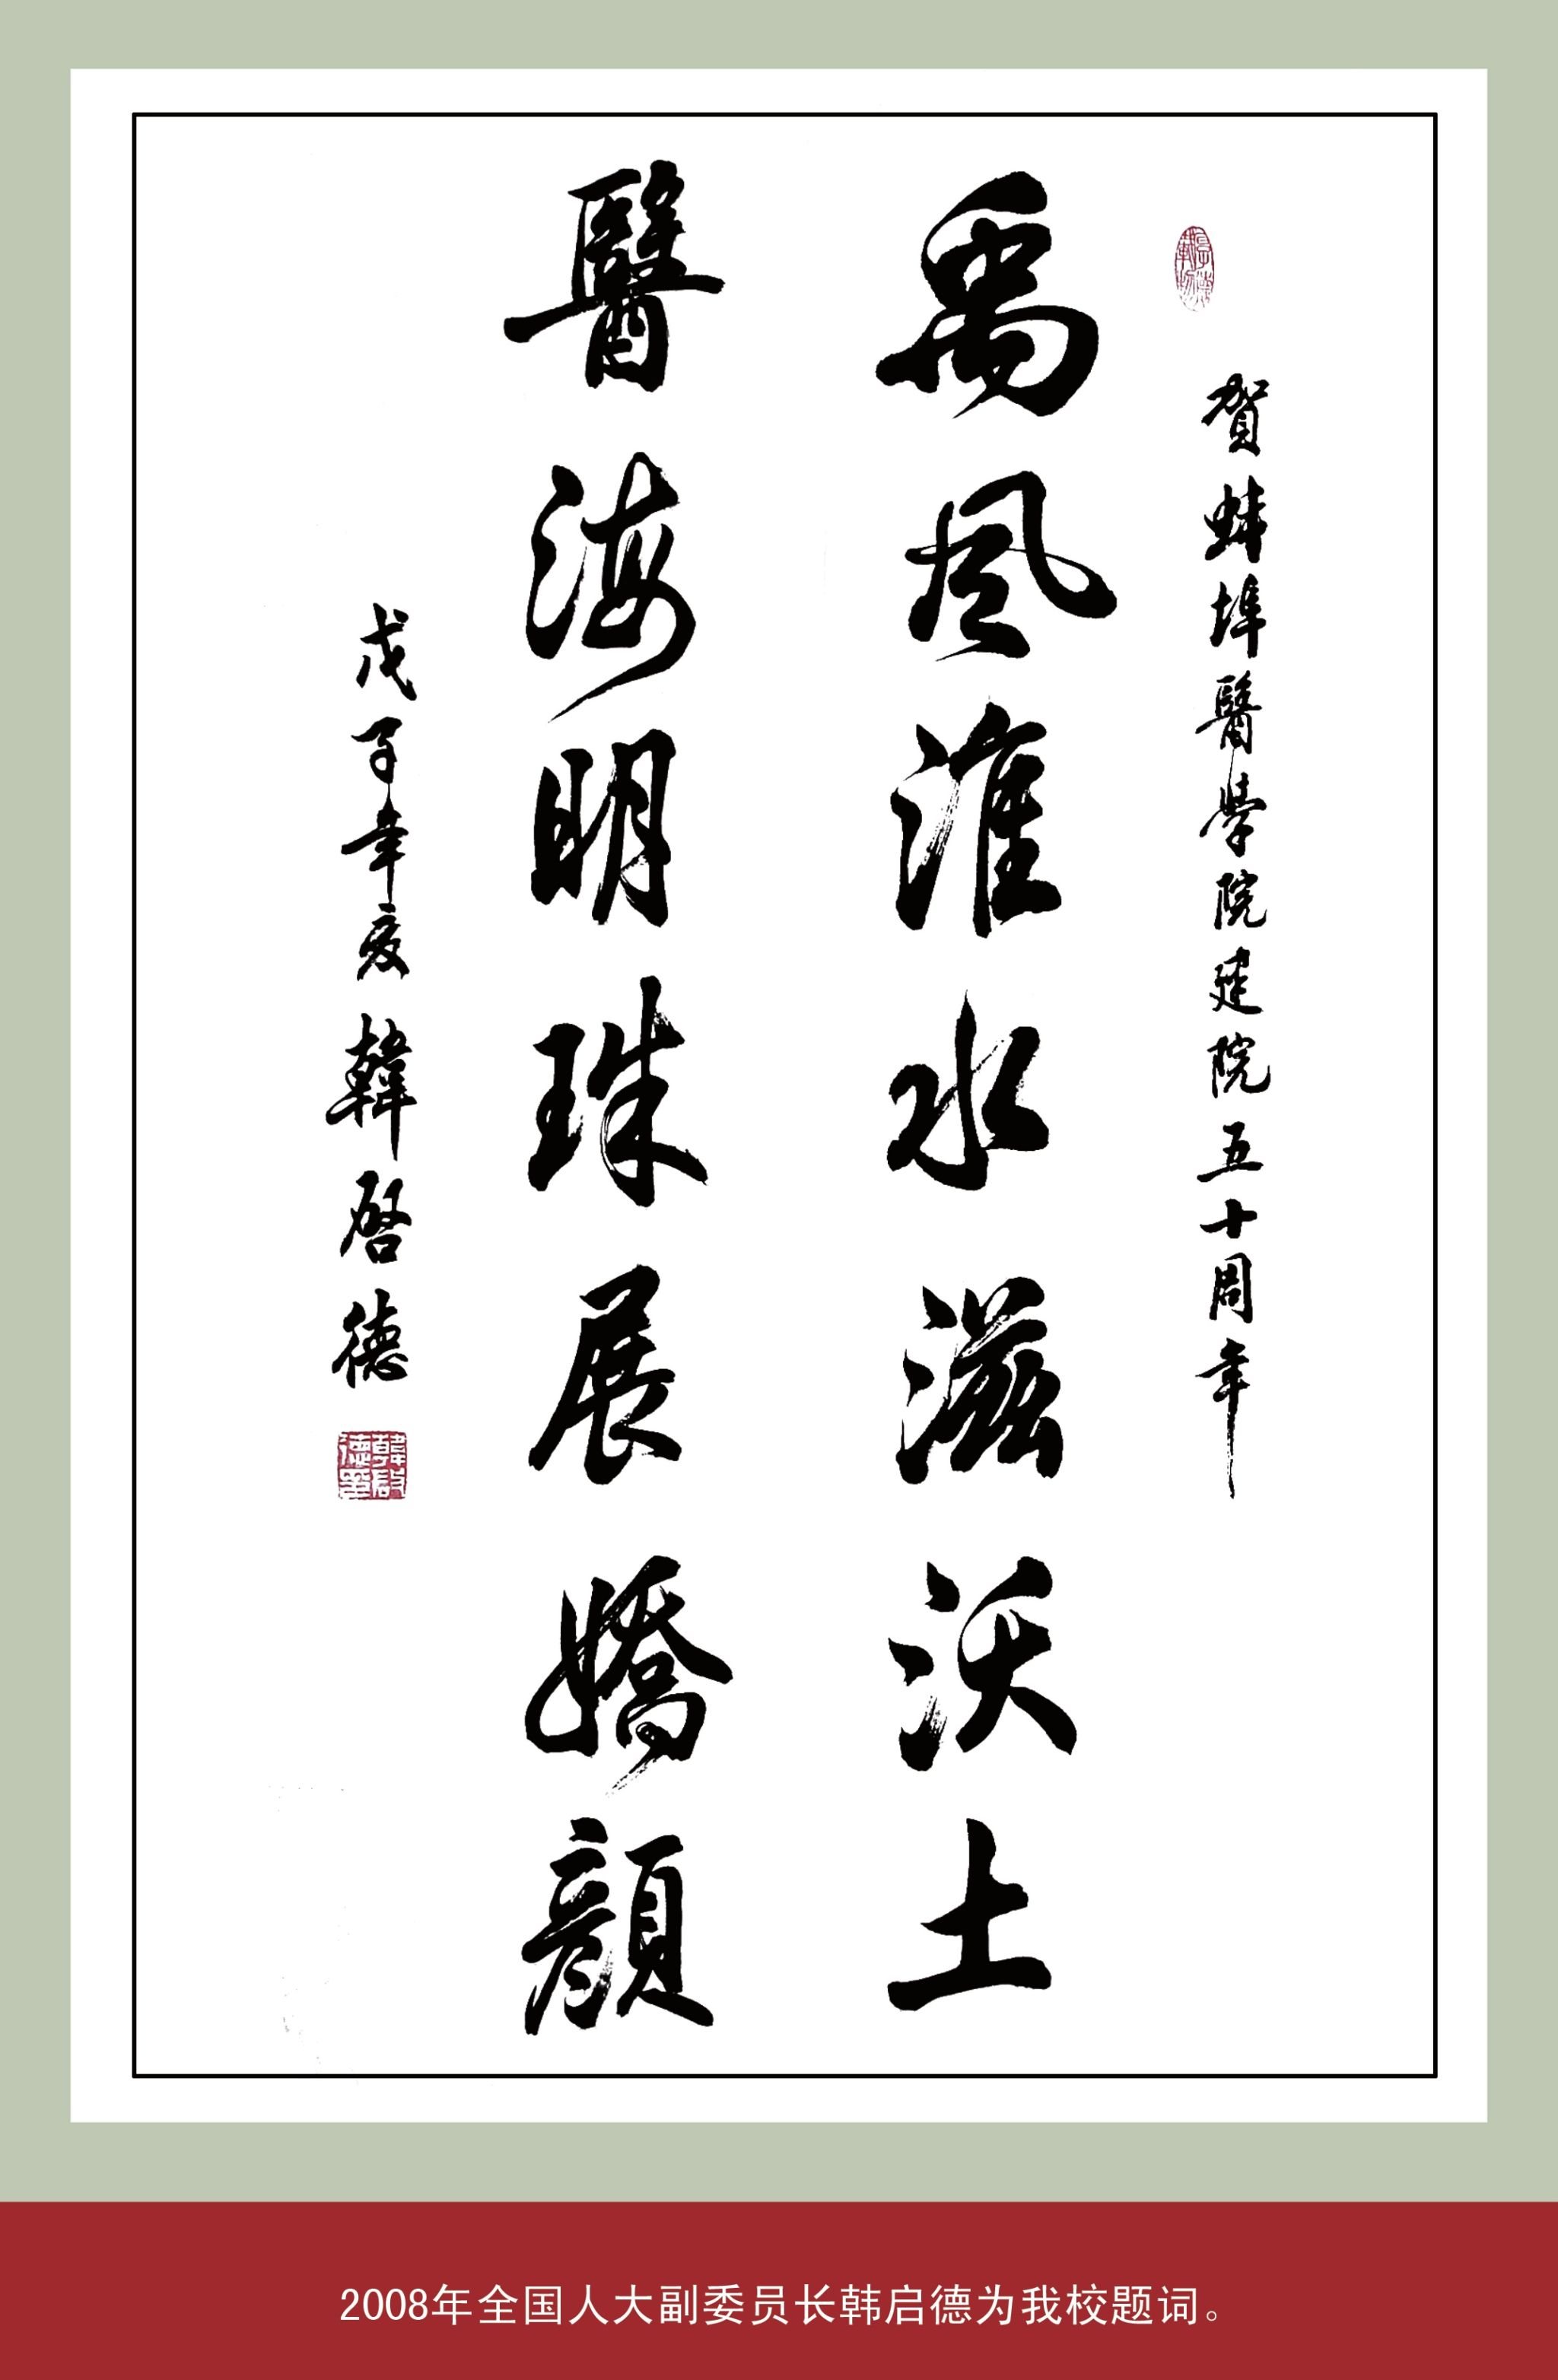 贺蚌埠醫学院建院五十周年
禹风淮水滋沃土
醫海明珠展嬌顔
戊子年夏 韓启德
韓啟德印
2008年全国人大副委员长韩启德为我校题词。